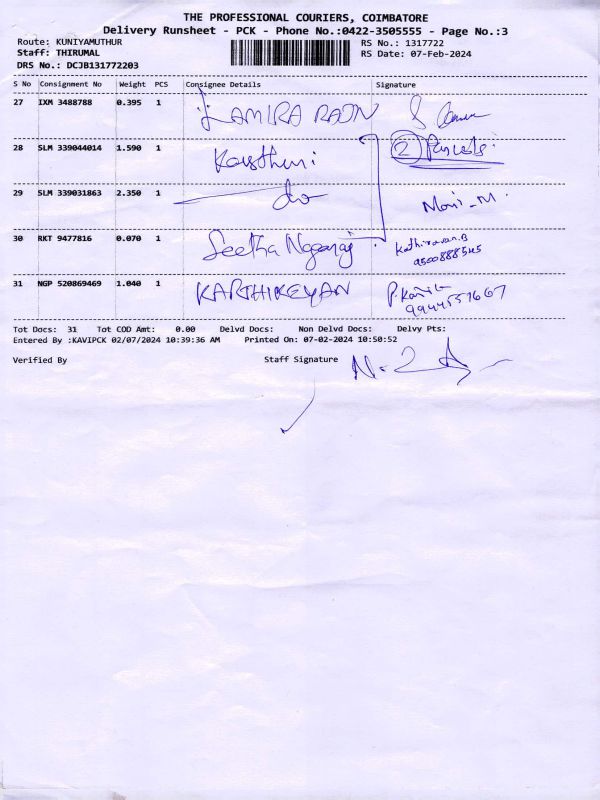 THE PROFESSIONAL COURIERS, COIMBATORE
Delivery Runsheet - PCK - Phone No.:0422-3505555 - Page No.:3
Route: KUNIYAMUTHUR RS No.: 1317722
Staff: THIRUMAL RS Date: 07-Feb-2024
DRS No.: DCJB131772203
S No Consignment No Weight PCS Consignee Details Signature
27 IXM 3488788 0.395 1
28 SLM 339044014 1.590 1 Kasthuri 2 Parcels
29 SLM 339031863 2.350 1 do Mani-M
30 RKT 9477816 0.070 1 Seetha Nagaraj Kathiravan.B
31 NGP 520869469 1.040 1 KARTHIKEYAN
Tot Docs: 31 Tot COD Amt: 0.00 Delvd Docs: Non Delvd Docs: Delvy Pts:
Entered By :KAVIPCK 02/07/2024 10:39:36 AM Printed On: 07-02-2024 10:50:52
Verified By Staff Signature